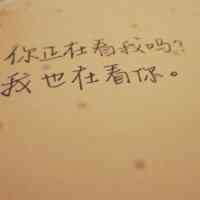 你正在看我吗?
我也在看你。